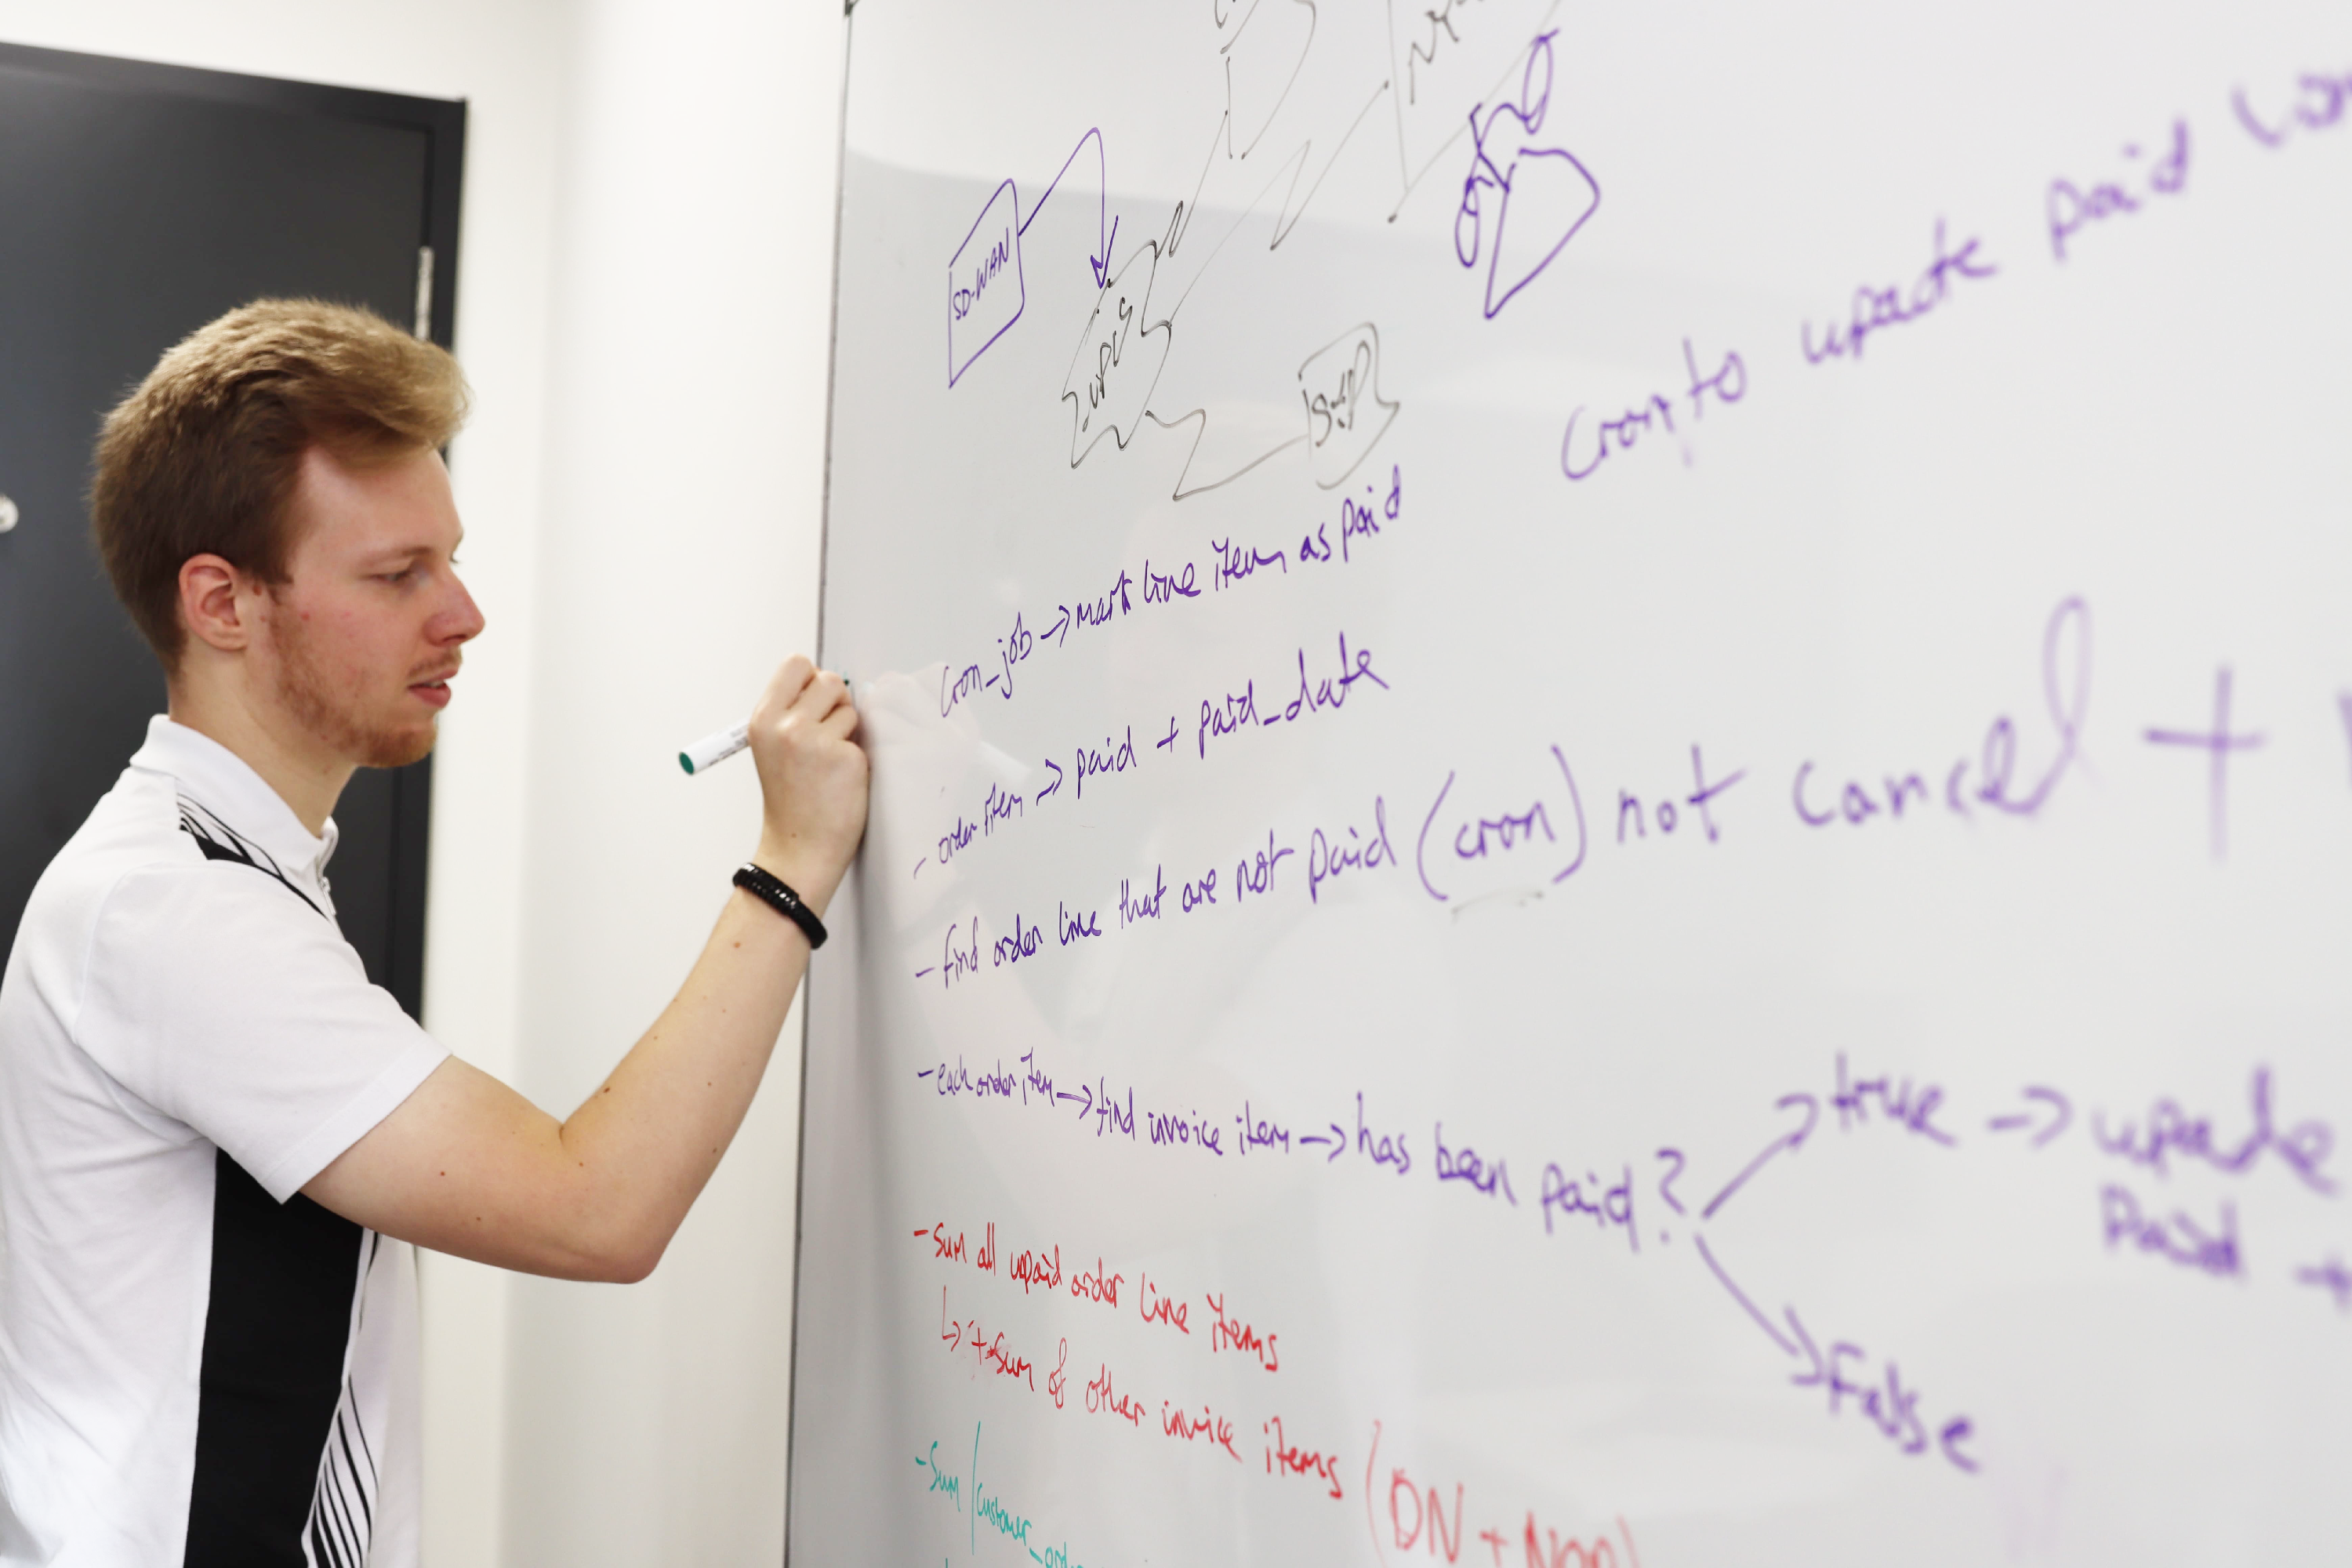 SD-WAN
cron to update paid
cron_job → mark line item as paid
- order item → paid + paid_date
- find order line that are not paid (cron) not cancel +
- each order item → find invoice item → has been paid?
true → update
paid +
False
- sum all upaid order line items
↳ + sum of other invice items (DN + Non)
- Sum / customer_